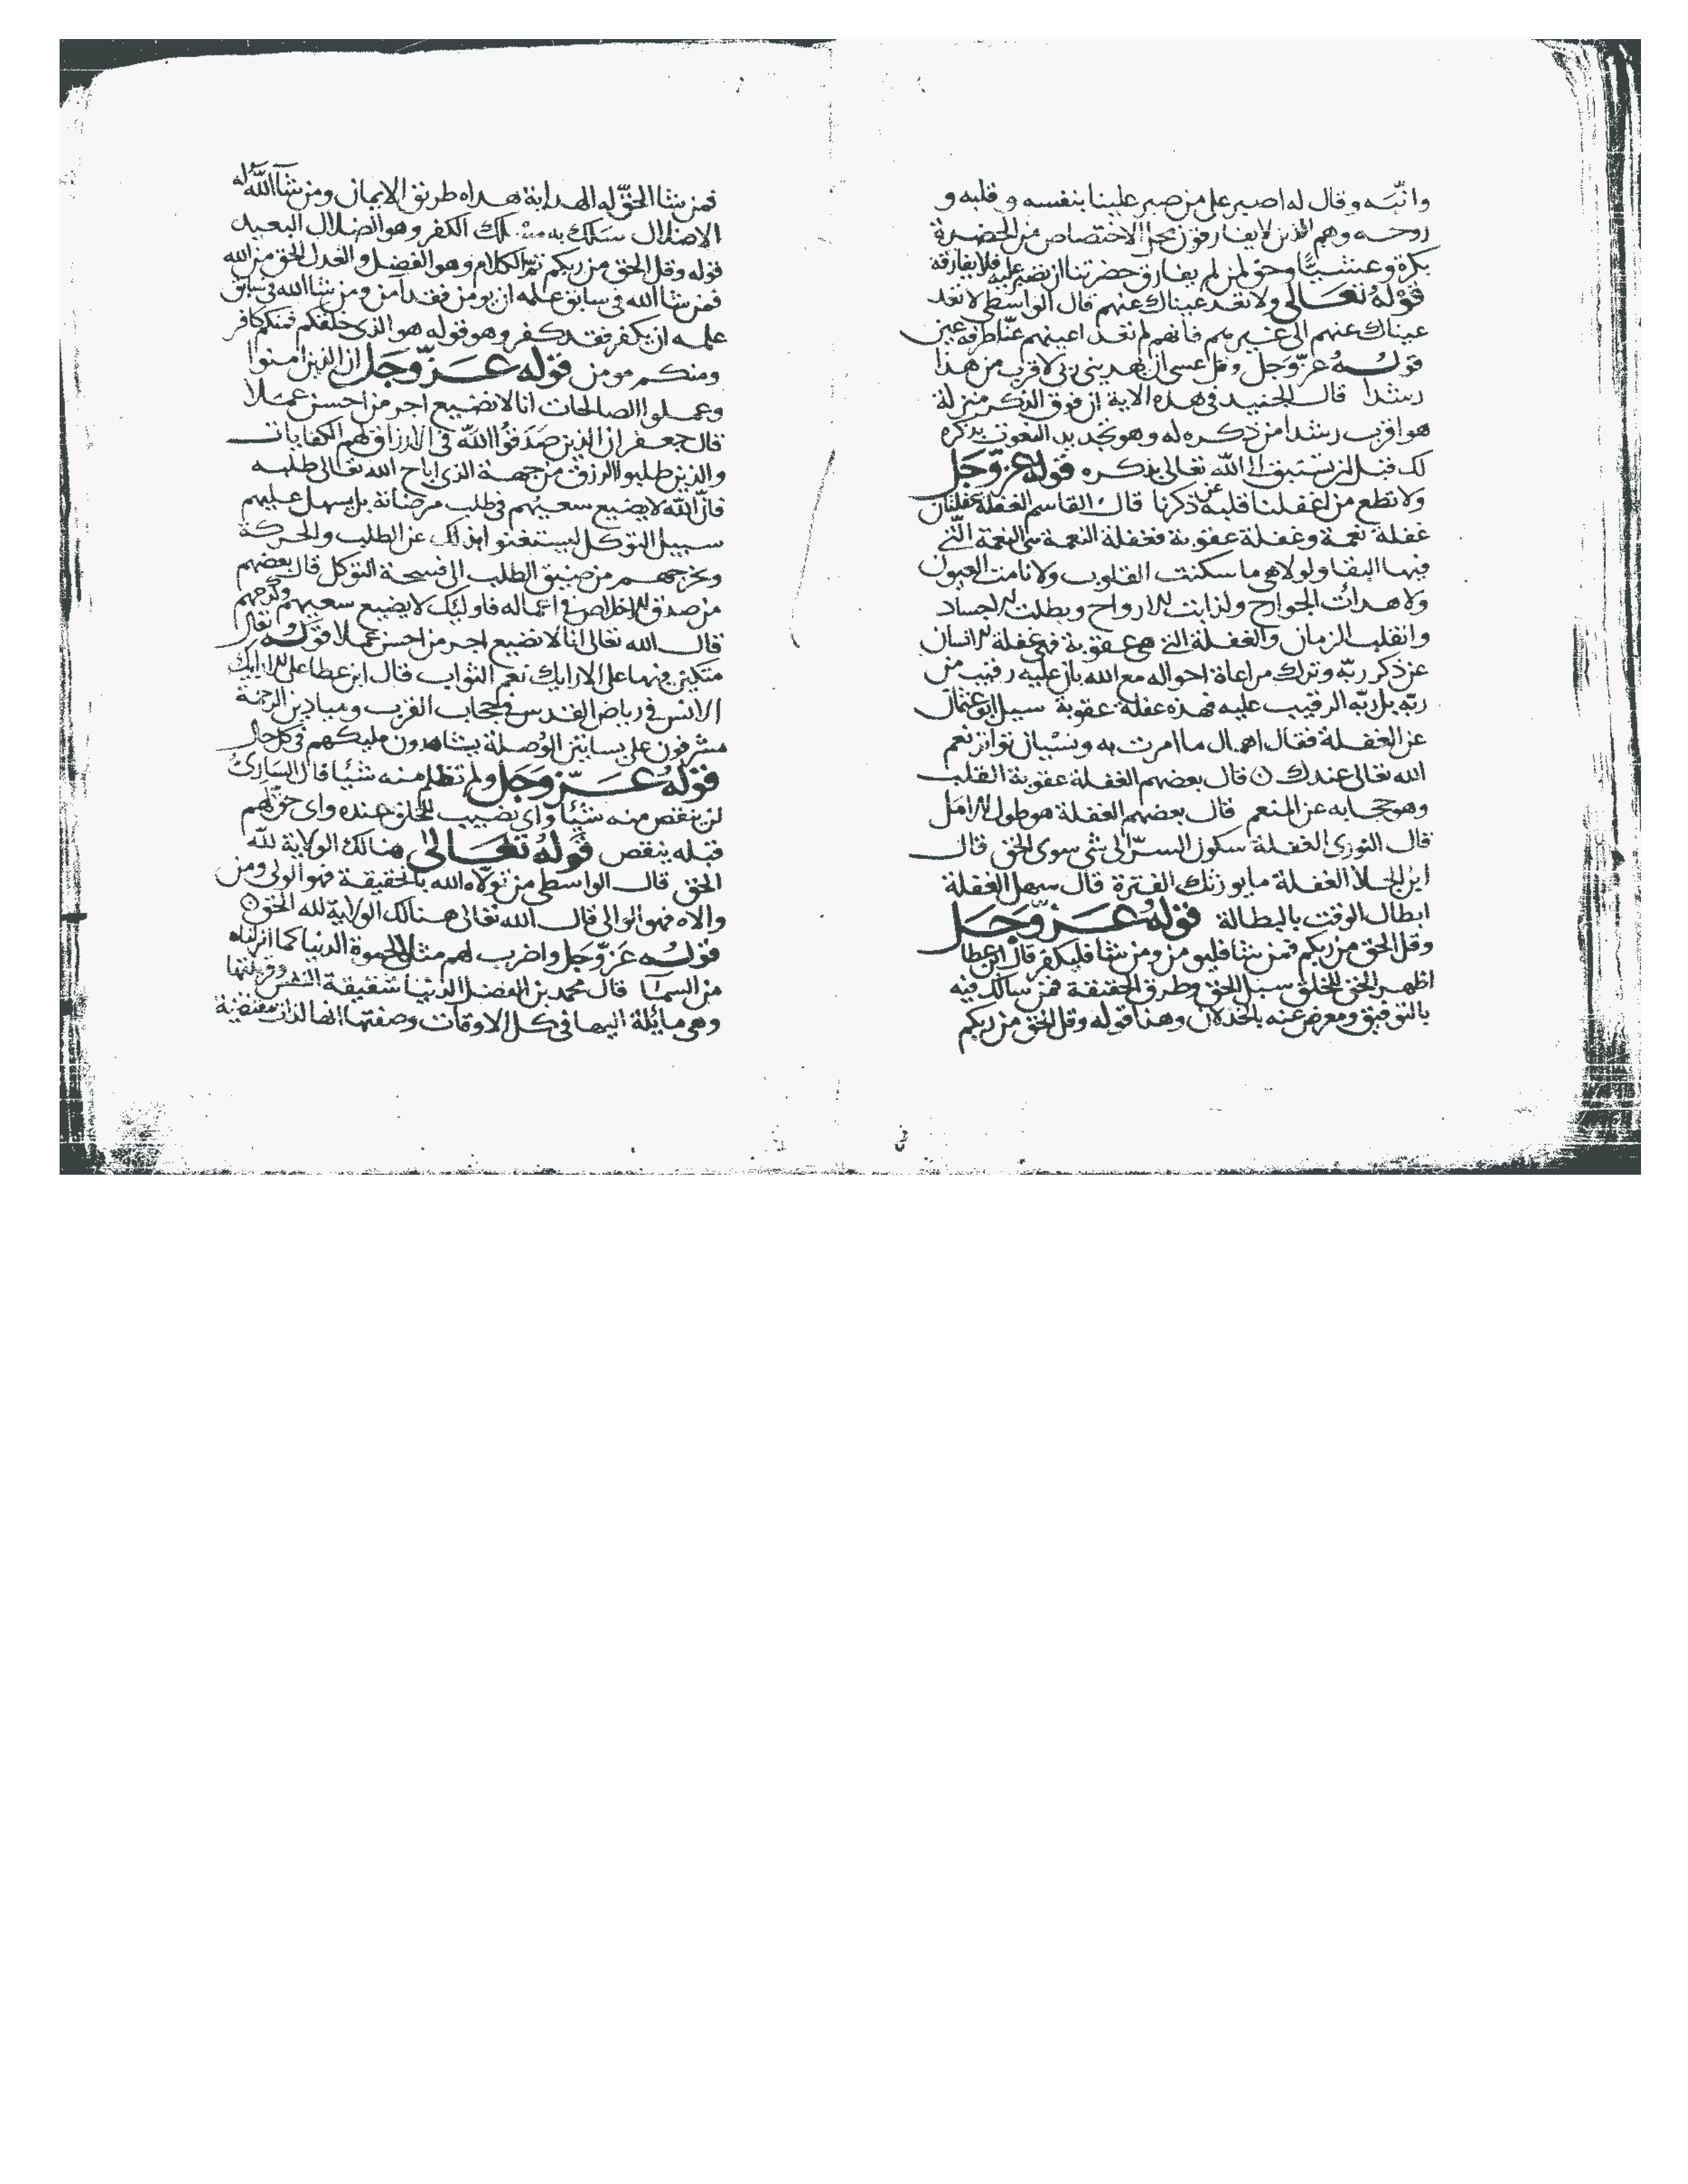 وانبّه وقال له اصبر على من صبر علينا بنفسه وقلبه و
روحه وهم الذين لا يفارقون محل الاختصاص من الحضرة
بكرة وعشيّا وحق لمن لم يفارق حضرتنا ان نصبر عليه فلا يفارقه
قوله تعالى ولا تعد عيناك عنهم قال الواسطى لا تعد
عيناك عنهم الى غيرهم فانهم لم تعد اعينهم عنّا طرفة عين
قوله عزّ وجل وقل عسى ان يهدينى ربى لاقرب من هذا
رشدا قال الجنيد فى هذه الاية ان فوق الذكر منزلة
هو اقرب رشدا من ذكره له وهو تجديد النعوت بذكره
لك قبل ان تسبق الى الله تعالى بذكره قوله عزّ وجل
ولا تطع من اغفلنا قلبه عن ذكرنا قال القاسم الغفلة غفلتان
غفلة نعمة وغفلة عقوبة فغفلة النعمة هى النعمة الّتى
فيها البقا ولولا هى ما سكنت القلوب ولا نامت العيون
ولا هدأت الجوارح ولذابت الارواح وبطلت الاجساد
وانقلب الزمان والغفلة التى هى عقوبة فهى غفلة الانسان
عن ذكر ربّه وترك مراعاة احواله مع الله بان عليه رقيب من
ربّه بل ربّه الرقيب عليه فهذه غفلة عقوبة سيل ابو عثمان
عن الغفلة فقال اهمال ما امرت به ونسيان تواتر نعم
الله تعالى عندك قال بعضهم الغفلة عقوبة القلب
وهو حجابه عن المنعم قال بعضهم الغفلة هو طول الامل
قال النورى الغفلة سكون السرّ الى شى سوى الحق قال
ابن الجلا الغفلة ما يورثك الفترة قال سهل الغفلة
ابطال الوقت بالبطالة قوله عزّ وجل
وقل الحق من ربكم فمن شا فليومن ومن شا فليكفر قال ابن عطا
اظهر الحق للخلق سبل الحق وطرق الحقيقة فمن سالك فيه
بالتوفيق ومعرض عنه بالخذلان وهذا قوله وقل الحق من ربكم
فمن شا الحقّ له الهداية هداه طريق الايمان ومن شا اللّه له
الاضلال سلك به مسلك الكفر وهو الضلال البعيد
قوله وقل الحق من ربكم تمّ الكلام وهو الفضل والعدل الحق من الله
فمن شا الله فى سابق علمه ان يومن فقد آمن ومن شا الله فى سابق
علمه ان يكفر فقد كفر وهو قوله هو الذى خلقكم فمنكم كافر
ومنكم مومن قوله عزّ وجل ان الذين امنوا
وعملوا الصالحات انا لا نضيع اجر من احسن عملا
قال جعفر ان الذين صَدَقُوا اللّه فى الارزاق لهم الكفايات
والذين طلبوا الرزق من جهة الذى اباح الله تعالى طلبه
فانّ اللّه لا يضيع سعيهم فى طلب مرضاته بل يسهل عليهم
سبيل التوكل ليستغنوا بذلك عن الطلب والحركة
ويخرجهم من ضيق الطلب الى فسحة التوكل قال بعضهم
من صدق الاخلاص فى اعماله فاوليك لا يضيع سعيهم
قال الله تعالى انا لا نضيع اجر من احسن عملا قوله تعالى
متكيين فيها على الارايك نعم الثواب قال ابن عطا على ارايك
الانس فى رياض القدس فى حجاب القرب وميادين الرحمة
مشرفون على بساتين الوصلة يشاهدون مليكهم فى كل حال
قوله عزّ وجل ولم تظلم منه شيئا قال السيارى
لن ينقص منه شيئا واى نصيب للخلق عنده واى حق لهم
قبله ينقص قوله تعالى هنالك الولاية للّه
الحق قال الواسطى من تولّاه الله بالحقيقة فهو الولى ومن
والاه فهو الوالى قال الله تعالى هنالك الولاية للّه الحق
قوله عزّ وجل واضرب لهم مثل الحيوة الدنيا كما انزلناه
من السمآ قال محمد بن الفضل الدنيا شقيقة النفس وقرينتها
وهى مايلة اليها فى كل الاوقات وصفتها